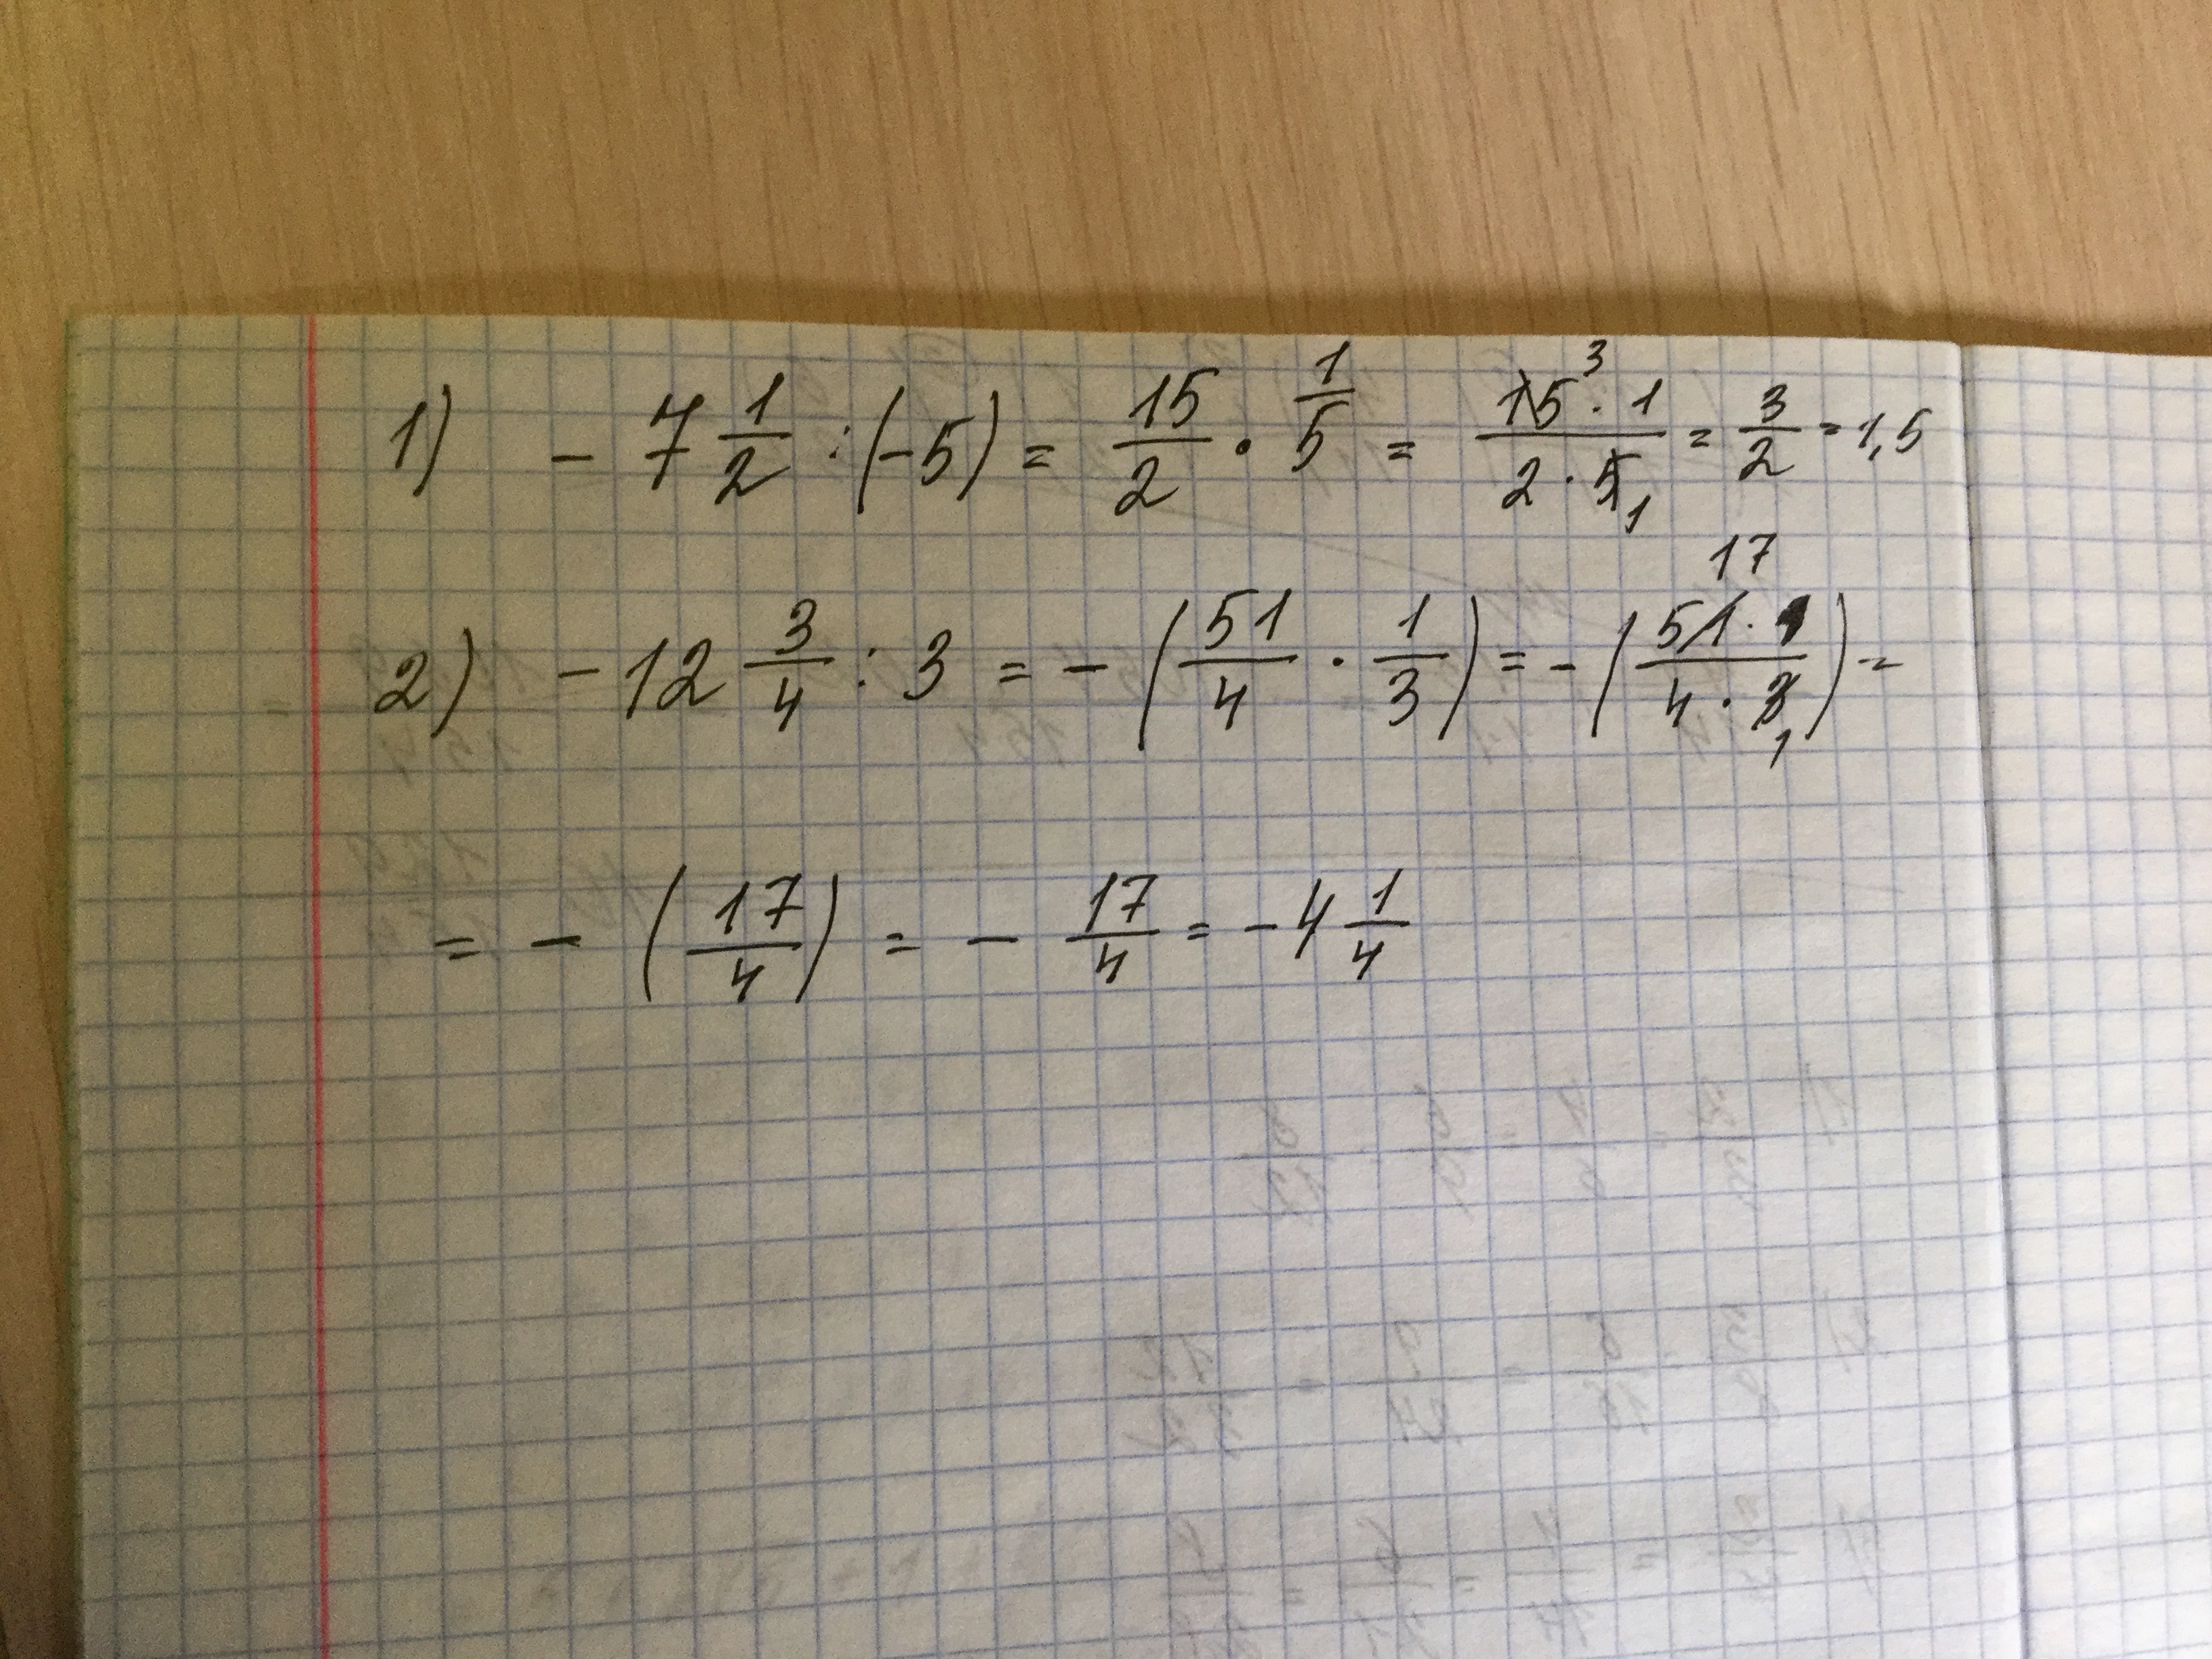 1) - 7 1/2 : (-5) = 15/2 · 1/5 = 15 3 · 1 / 2 · 5 1 = 3/2 = 1,5
2) - 12 3/4 : 3 = - (51/4 · 1/3) = - (51 17 · 1 / 4 · 3 1) =
= - (17/4) = - 17/4 = - 4 1/4